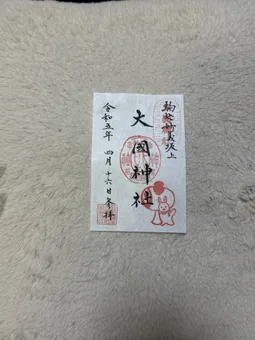 駒込妙義坂上
大國神社
令和五年 四月 十六日 参拝